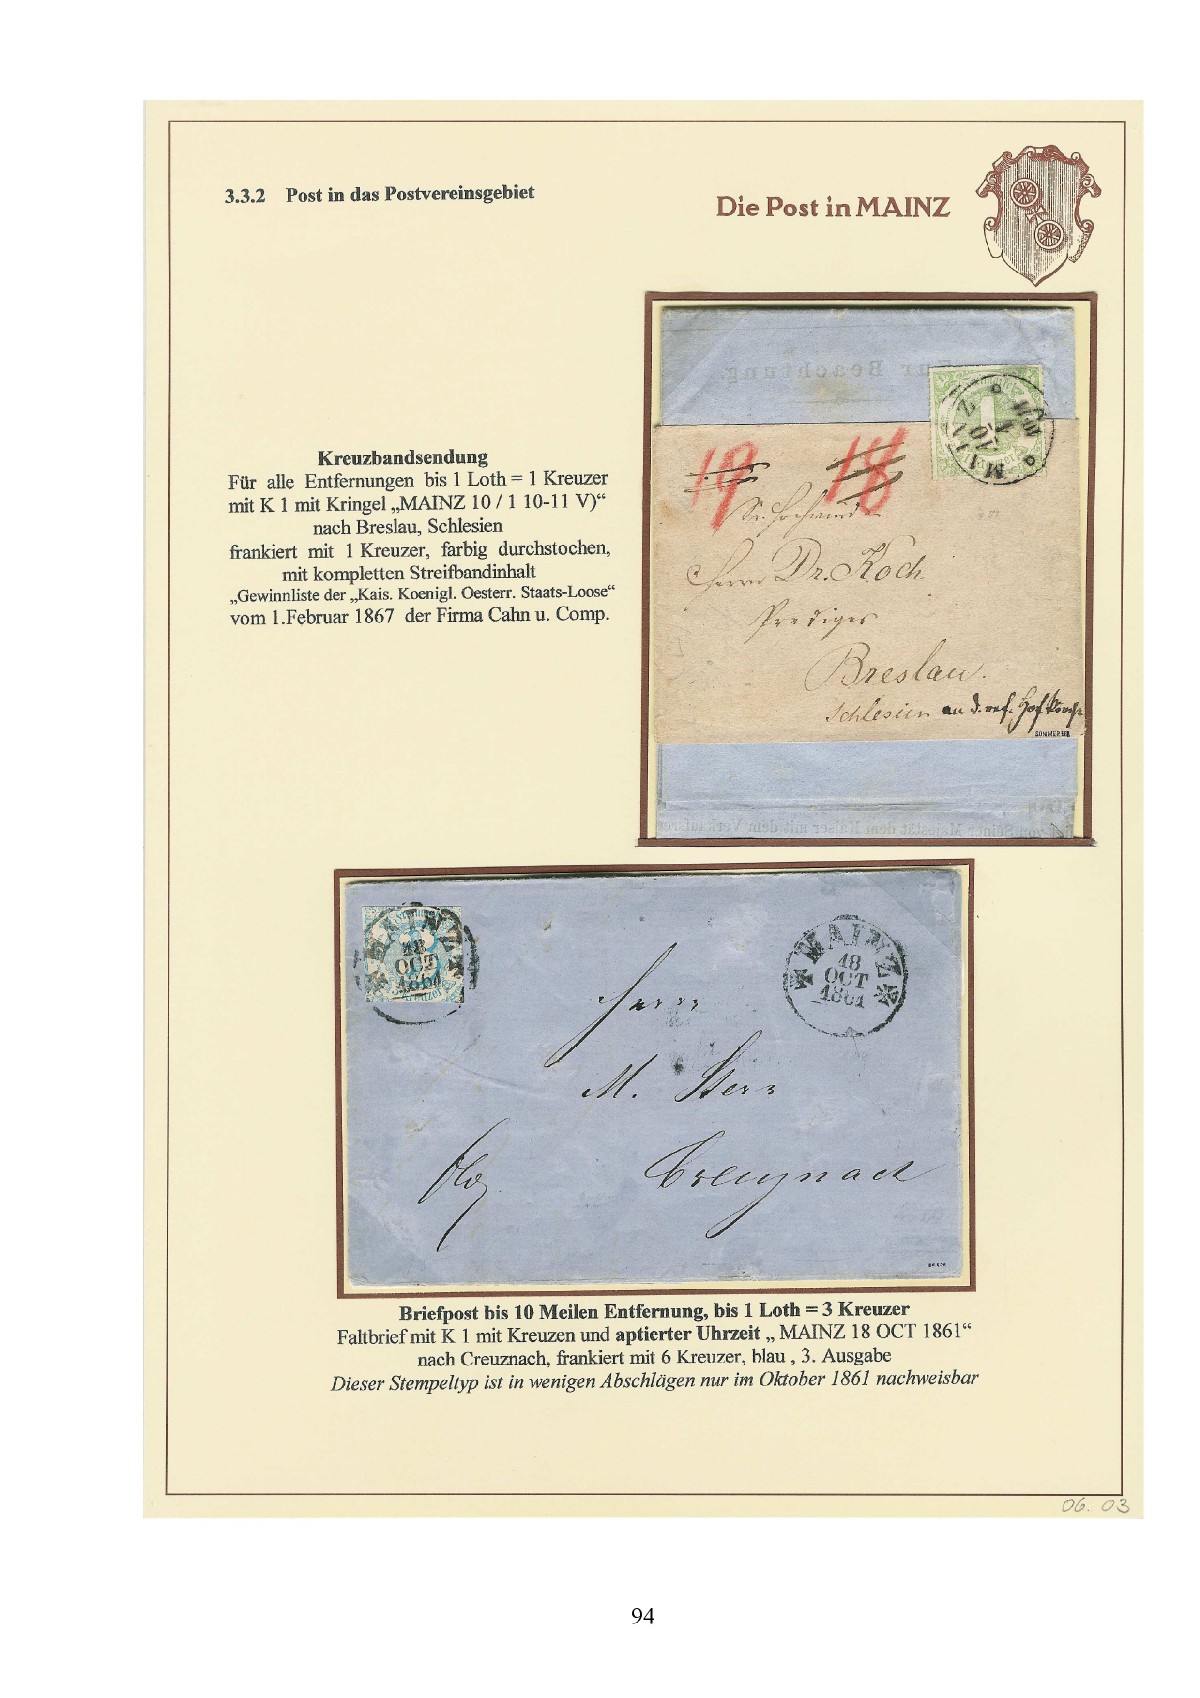 3.3.2 Post in das Postvereinsgebiet
Die Post in MAINZ
Kreuzbandsendung
Für alle Entfernungen bis 1 Loth = 1 Kreuzer
mit K 1 mit Kringel „MAINZ 10 / 1 10-11 V)“
nach Breslau, Schlesien
frankiert mit 1 Kreuzer, farbig durchstochen,
mit kompletten Streifbandinhalt
„Gewinnliste der „Kais. Koenigl. Oesterr. Staats-Loose“
vom 1.Februar 1867 der Firma Cahn u. Comp.
Zur Beachtung.
MAINZ
10
1
19 18
Sr. Hochwürden
Herrn Dr. Koch
Prediger
Breslau.
Schlesien an d. ref. Hof Kirche
von Seiner Majestät dem Kaiser mit dem Verkaufsrec
MAINZ
18
OCT
1861
Kreuzer
MAINZ
18
OCT
1861
Herrn
M. Stern
Creuznach
Briefpost bis 10 Meilen Entfernung, bis 1 Loth = 3 Kreuzer
Faltbrief mit K 1 mit Kreuzen und aptierter Uhrzeit „ MAINZ 18 OCT 1861“
nach Creuznach, frankiert mit 6 Kreuzer, blau , 3. Ausgabe
Dieser Stempeltyp ist in wenigen Abschlägen nur im Oktober 1861 nachweisbar
06. 03
94